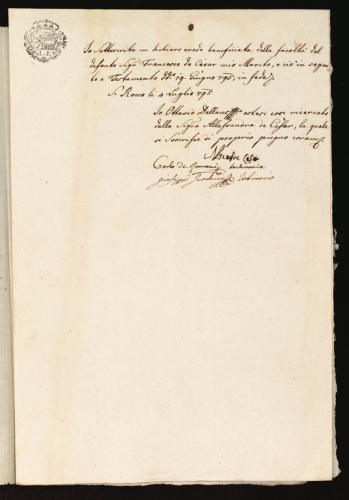 Io Sottoscrita mi dichiaro erede beneficiata della facoltà del
defonto Sigr Francesco de Cesar mio Marito, e ciò in seguito
a Testamento 19 Giugno 795, in fede
S. Rocco li 4 Luglio 795
Io Ottavio scrissi così ricercato
dalla Sigra Allessandra de Cesar, la quale
si Soscrisse di proprio pugno
Carlo de testimonio
Giuseppe testimonio